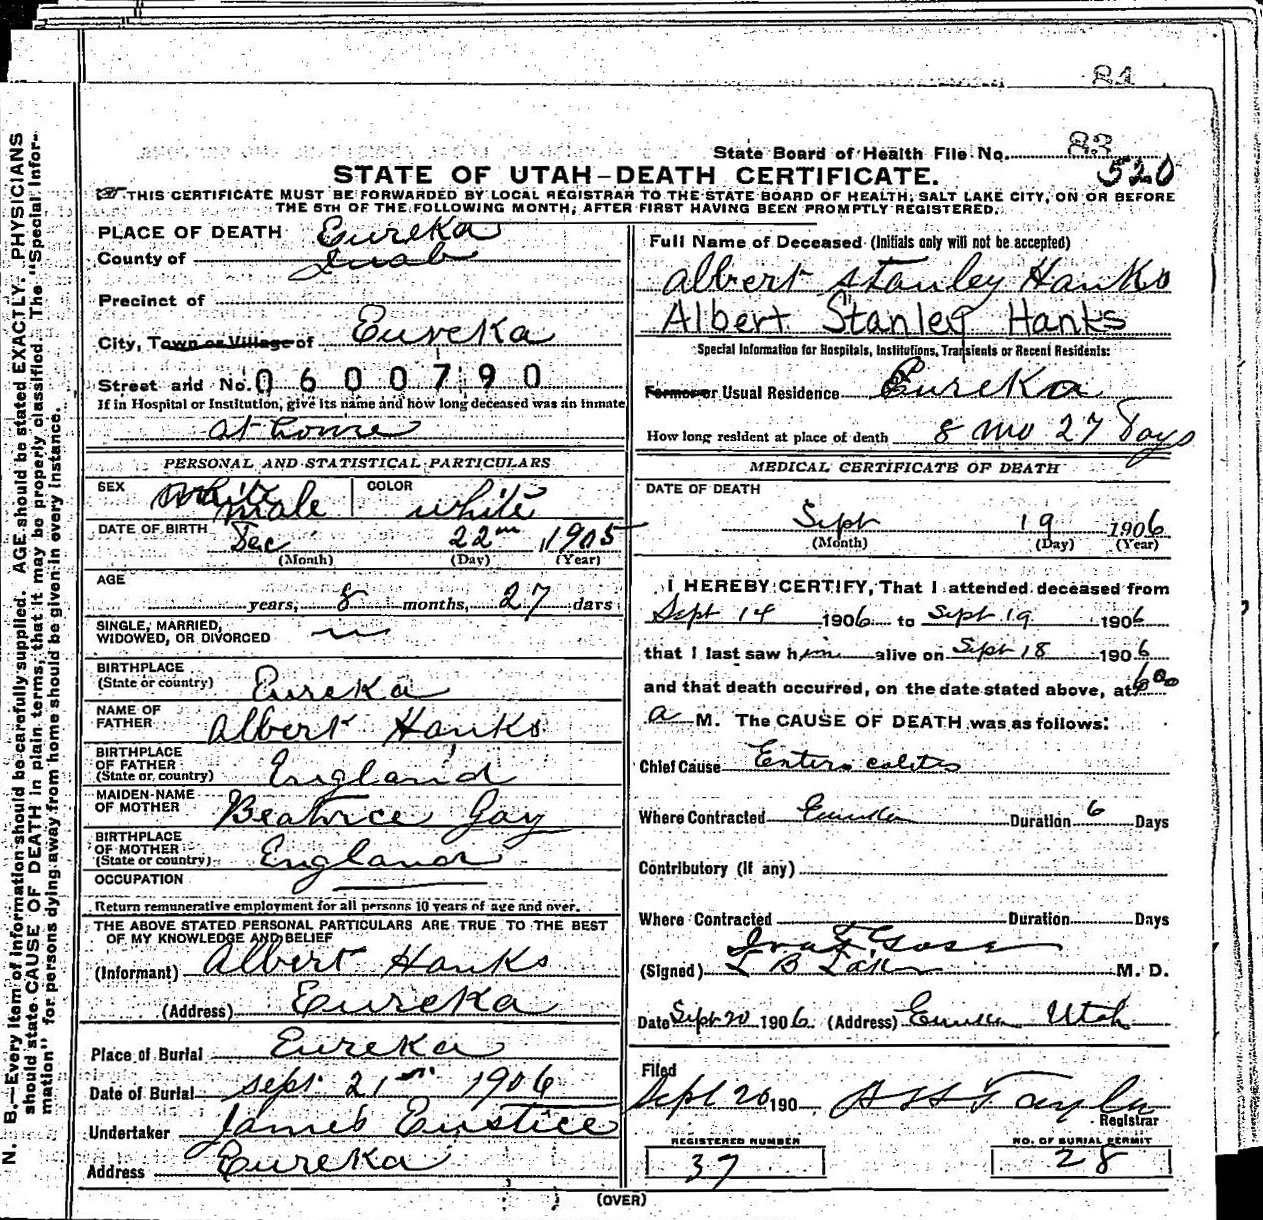 84
83
State Board of Health File No.
520
STATE OF UTAH-DEATH CERTIFICATE.
THIS CERTIFICATE MUST BE FORWARDED BY LOCAL REGISTRAR TO THE STATE BOARD OF HEALTH, SALT LAKE CITY, ON OR BEFORE
THE 5TH OF THE FOLLOWING MONTH, AFTER FIRST HAVING BEEN PROMPTLY REGISTERED.
PLACE OF DEATH Eureka
County of Juab
Precinct of
City, Town or Village of Eureka
Street and No. 0600790
If in Hospital or Institution, give its name and how long deceased was an inmate
at home
PERSONAL AND STATISTICAL PARTICULARS
SEX white male COLOR white
DATE OF BIRTH Dec 22nd, 1905
(Month) (Day) (Year)
AGE
years, 8 months, 27 days
SINGLE, MARRIED,
WIDOWED, OR DIVORCED
BIRTHPLACE
(State or country) Eureka
NAME OF
FATHER Albert Hanks
BIRTHPLACE
OF FATHER
(State or country) England
MAIDEN-NAME
OF MOTHER Beatrice Gay
BIRTHPLACE
OF MOTHER
(State or country) England
OCCUPATION
Return remunerative employment for all persons 10 years of age and over.
THE ABOVE STATED PERSONAL PARTICULARS ARE TRUE TO THE BEST
OF MY KNOWLEDGE AND BELIEF
(Informant) Albert Hanks
(Address) Eureka
Place of Burial Eureka
Date of Burial Sept 21st 1906
Undertaker James Eustice
Address Eureka
Full Name of Deceased (Initials only will not be accepted)
Albert Stanley Hanks
Albert Stanley Hanks
Special Information for Hospitals, Institutions, Transients or Recent Residents:
Former or Usual Residence Eureka
How long resident at place of death 8 mo 27 Days
MEDICAL CERTIFICATE OF DEATH
DATE OF DEATH
Sept 19 1906
(Month) (Day) (Year)
I HEREBY CERTIFY, That I attended deceased from
Sept 14 1906 to Sept 19 1906
that I last saw him alive on Sept 18 1906
and that death occurred, on the date stated above, at 6 00
a M. The CAUSE OF DEATH was as follows:
Chief Cause Entero colitis
Where Contracted Eureka Duration 6 Days
Contributory (if any)
Where Contracted Duration Days
(Signed) M. D.
Date Sept 20 1906. (Address) Eureka Utah
Filed
Sept 20 190 Taylor
Registrar
REGISTERED NUMBER
37
NO. OF BURIAL PERMIT
28
(OVER)
N. B.—Every item of information should be carefully supplied. AGE should be stated EXACTLY. PHYSICIANS
should state CAUSE OF DEATH in plain terms, that it may be properly classified. The "Special Infor-
mation" for persons dying away from home should be given in every instance.